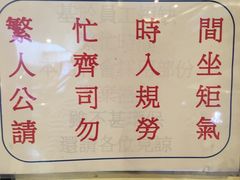 繁忙時間
人齊入坐
公司規矩
請勿勞氣
還請各位見諒